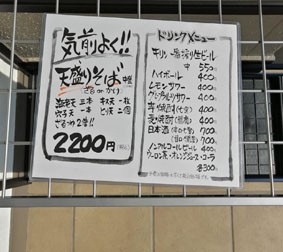 気前よく!!
天盛りそば
ざるorかけ
海老天 三本 キス天 一枚
穴子天 一本 ピーマン 二個
2200円(税込)
ドリンクメニュー
キリン一番搾り生ビール
中 550
ハイボール 400
レモンサワー 400
グレープフルーツサワー 400
芋焼酎 400
麦焼酎 400
日本酒 700
700
ノンアルコールビール 400
ウーロン茶・オレンジジュース・コーラ
各300